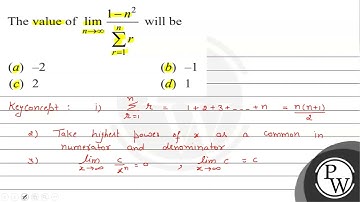 The value of lim n→∞ (1 − n²) / (∑ r=1 to n r) will be
(a) −2 (b) −1
(c) 2 (d) 1
Key concept : 1) ∑ r=1 to n r = 1 + 2 + 3 + ----- + n = n(n+1)/2
2) Take highest power of x as a common in
numerator and denominator
3) lim x→∞ c/xⁿ = 0 , lim x→∞ c = c
P
W